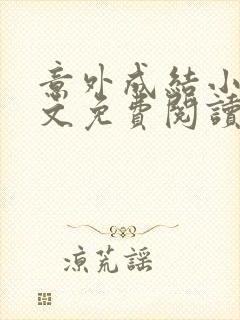 意外成結小
文免費閱讀
涼荒謠